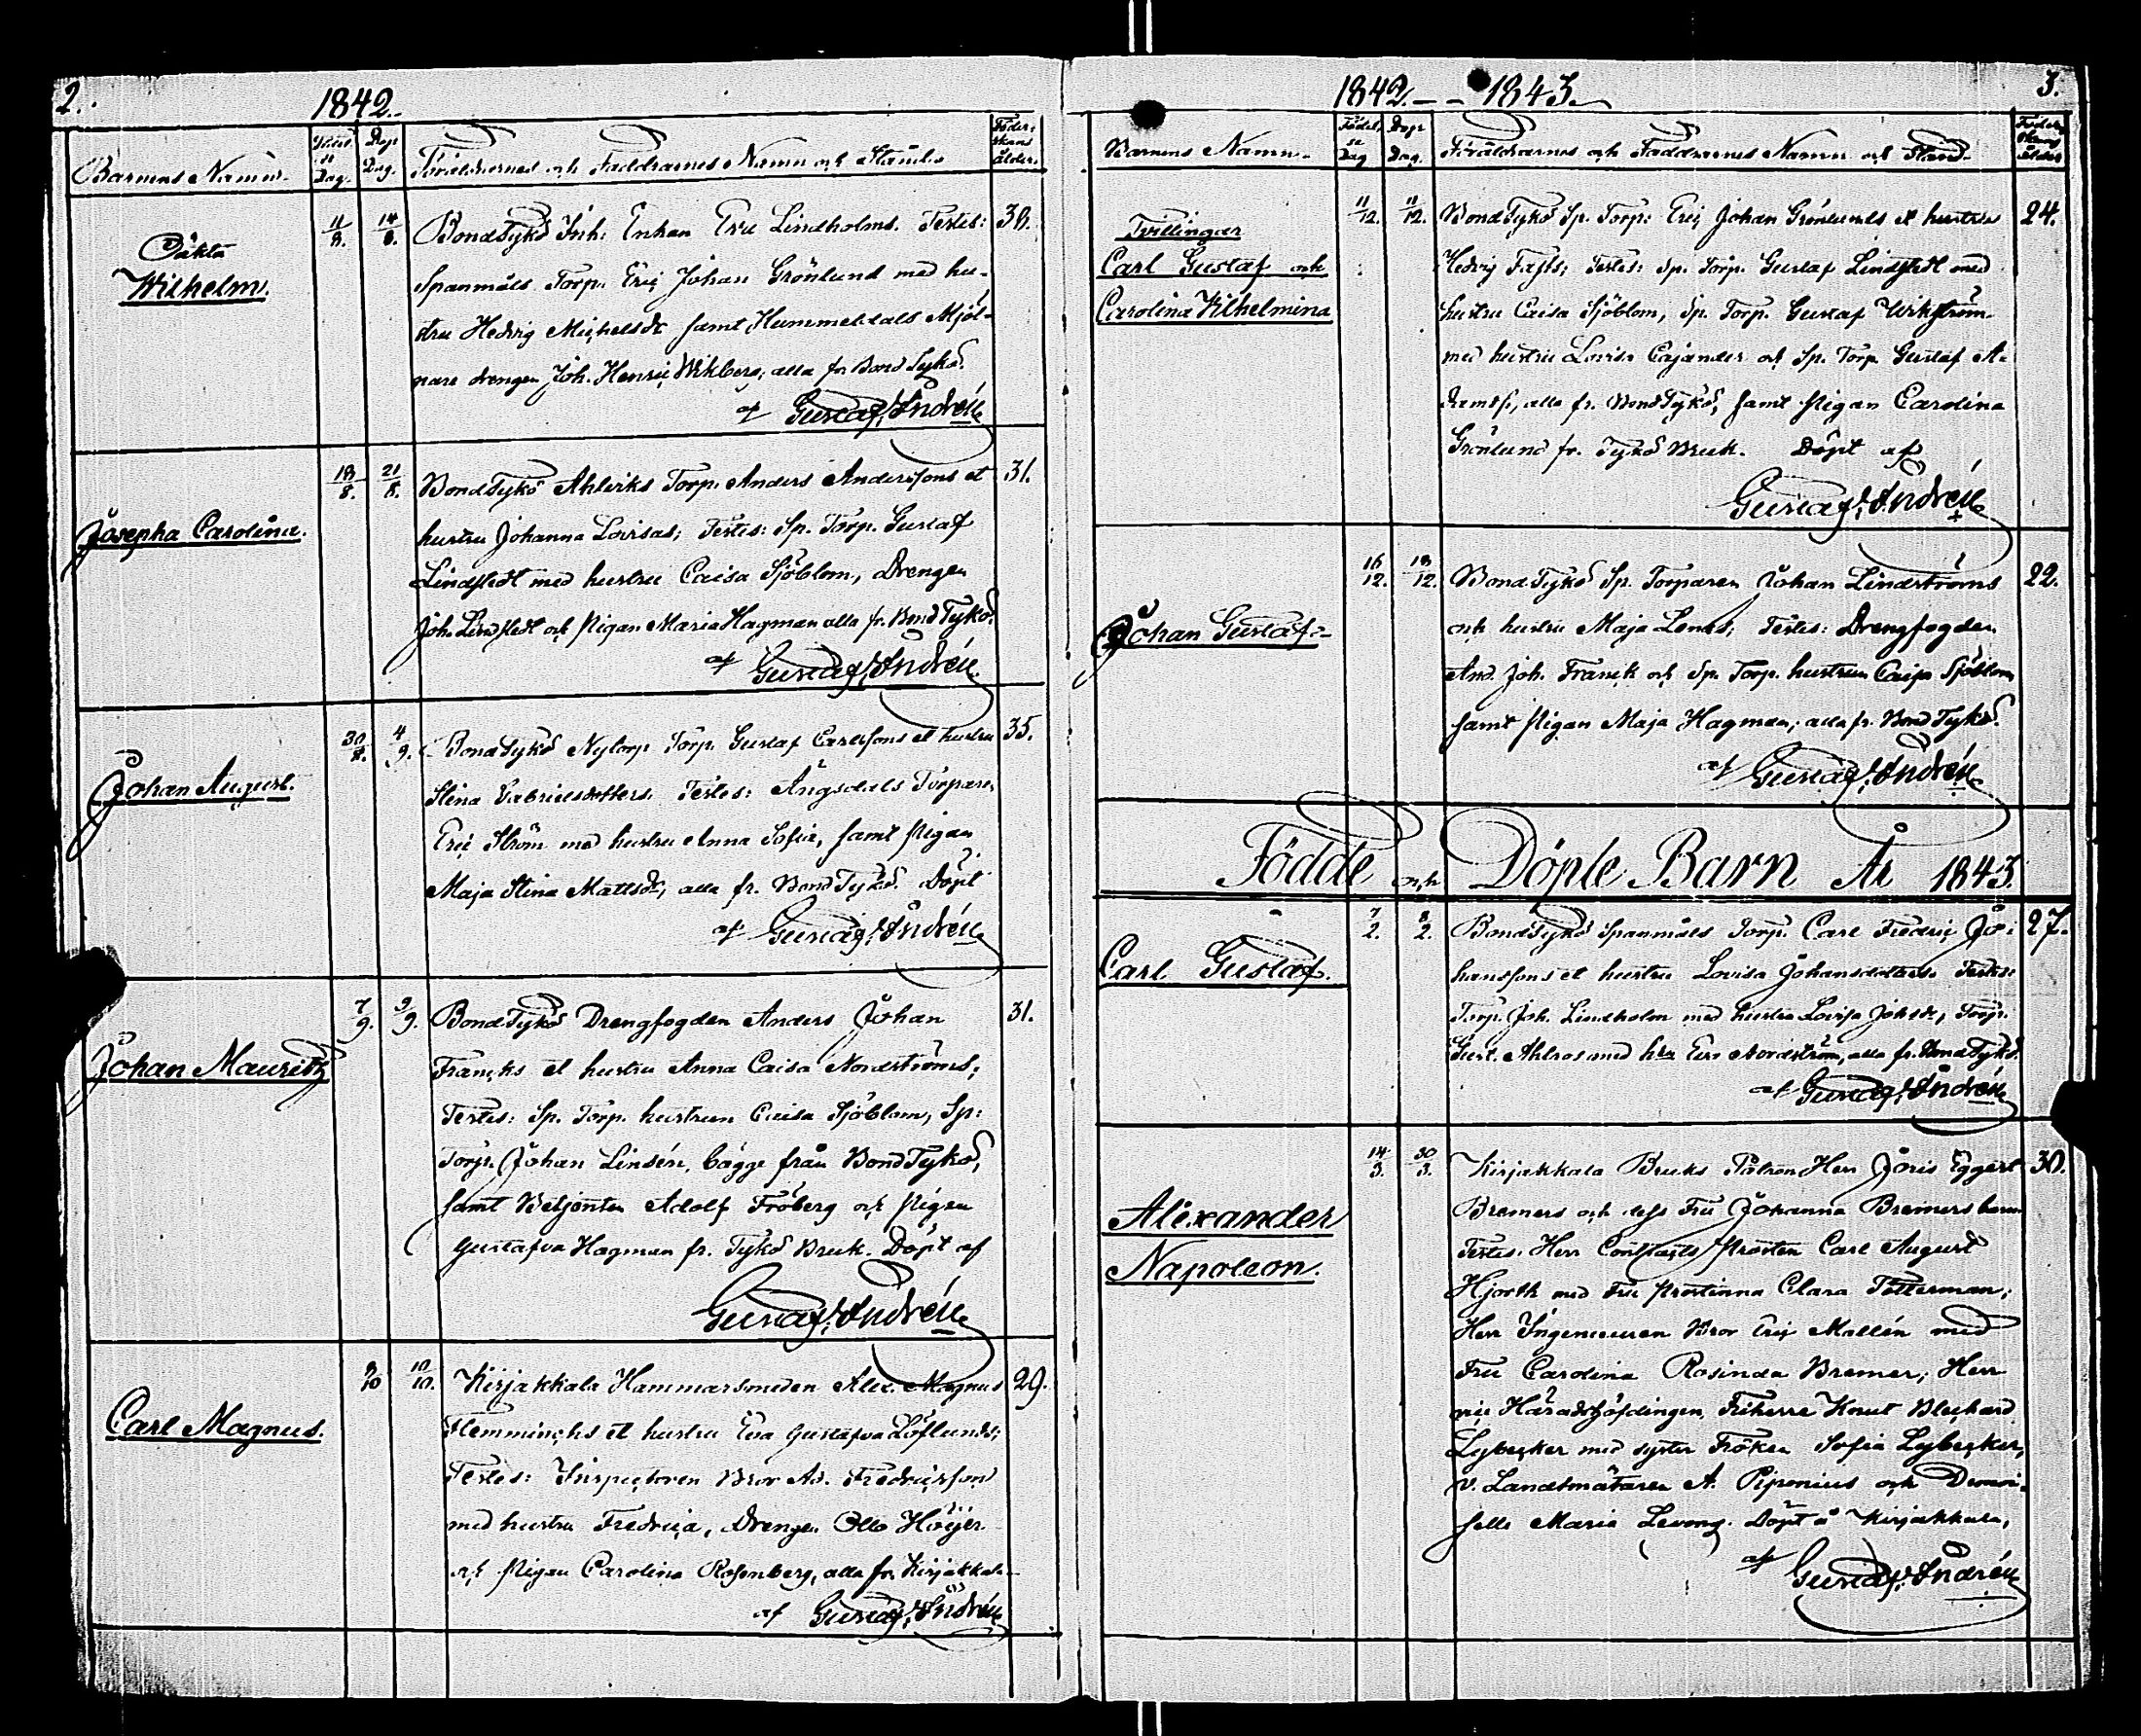 2.
1842.
Barnens Namn.
Födel-
se
Dag.
Dop
Dag.
Föräldrarnes och Faddrarnes Namn och Stånd.
Föder-
skans
ålder.
Oäkta
Wilhelm.
11/8.
14/8.
BondTykö Inh. Enkan Eva Lindholms. Testes:
38.
Spanmåls Torp. Eric Johan Grönlund med hu-
stru Hedvig Michelsdr samt Hummeldals Mjöl-
nare drengen Joh. Henric Wikberg, alla fr Bond Tykö.
af Gustaf Andrén
Josepha Carolina.
18/8.
21/8.
BondTykö Ahlviks Torp. Anders Anderssons et
31.
hustru Johanna Lovisas; Testes: Sp. Torp. Gustaf
Lindstedt med hustru Caisa Sjöblom, Drengen
Joh. Lindstedt och Pigan Maria Hagman alla fr. Bond Tykö.
af Gustaf Andrén
Johan August.
30/8.
4/9.
BondTykö Nytorp Torp. Gustaf Carlssons et hustru
35.
Stina Gabrielsdotters. Testes: Ängsdals Torparen
Eric Ström med hustru Anna Sofia, samt Pigan
Maja Stina Mattsdr, alla fr. Bond Tykö. Döpt
af Gustaf Andrén
Johan Mauritz
7/9.
9/9.
BondTykö Drengfogden Anders Johan
31.
Francks et hustru Anna Caisa Nordströms;
Testes: Sp. Torp. hustrun Caisa Sjöblom, Sp:
Torp. Johan Lindén, bägge från Bond Tykö,
samt Betjenten Adolf Fröberg och Pigan
Gustafva Hagman fr. Tykö Bruk. Döpt af
Gustaf Andrén
Carl Magnus.
8/10
10/10.
Kirjakkala Hammarsmeden Alex. Magnus
29.
Flemminchs et hustru Eva Gustafva Löflunds;
Testes: Inspectoren Bror Ad. Fredricsson
med hustru Fredrica, Drengen Otto Höijer
och Pigan Carolina Rosenberg, alla fr. Kirjakkala
af Gustaf Andrén
1842. - - 1843.
3.
Barnens Namn.
Födel-
se
Dag
Dop
Dag.
Föräldrarnes och Faddrarnes Namn och Stånd.
Föder-
skans
ålder
Tvillingar
Carl Gustaf och
Carolina Wilhelmina
11/12.
11/12.
BondTykö Sp. Torp: Eric Johan Grönlunds et hustru
24.
Hedvig Fasts; Testes: Sp. Torp. Gustaf Lindstedt med
hustru Caisa Sjöblom, Sp. Torp. Gustaf Wikström
med hustru Lovisa Cajander och Sp. Torp Gustaf A-
damss, alla fr. BondTykö, samt Pigan Carolina
Grönlund fr. Tykö Bruk. Döpt af
Gustaf Andrén
Johan Gustaf
16/12.
18/12.
BondTykö Sp. Torparen Johan Lindströms
22.
och hustru Maja Lenas; Testes: Drengfogden
And. Joh. Franck och Sp. Torp. hustrun Caisa Sjöblom
samt Pigan Maja Hagman, alla fr. Bond Tykö.
af Gustaf Andrén
Födde och Döpte Barn År 1843.
Carl Gustaf.
7/2.
8/2.
BondTykö Spanmåls Torp. Carl Fredric Jo-
27.
hanssons et hustru Lovisa Johansdotters. Testes:
Torp. Joh. Lindholm med hustru Lovisa Johsdr, Torp.
Gust. Ahlros med hru Eva Nordström, alla fr. Bond Tykö.
af Gustaf Andrén
Alexander
Napoleon.
14/3.
30/3.
Kirjakkala Bruks Patron Herr Joris Eggert
30.
Bremers och dess Fru Johanna Bremers barn
Testes. Herr Contracts Prosten Carl August
Hjorth med Fru Prostinna Clara Tötterman;
Herr Ingenieuren Bror Eric Mallén med
Fru Carolina Rosinda Bremer, Herr
vice Häradshöfdingen, Friherre Knut Blechard
Lybecker med syster Fröken Sofia Lybecker,
v. Landtmätaren A. Piponius och Demoi-
selle Maria Levong. Döpt å Kirjakkala,
af Gustaf Andrén